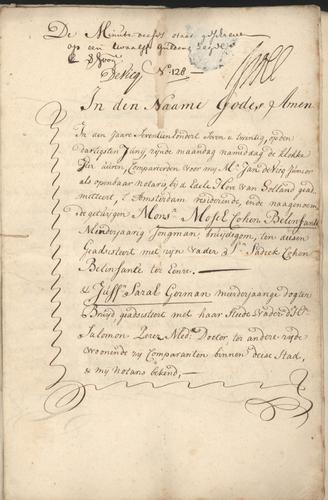 De Minute deeses staat geschreve
op een twaalff guldens segel
& 3 Boon
De Vicq N:o 128
In den Naame Godes Amen
In den Jaare Seventienhondert Seven u twintig, op den
dartigsten Junij, zynde maandag namiddag de klokke
vier uuren, Compareerden voor my M:r Jan de Vicq Junior
als openbaar notaris, by d'Edele Hove van Holland gead
mitteert, t' Amsterdam resideerende, ende naagenoemde
de getuygen Mons:r Mosel Cohen Belinfante
Minderjaarig Jongman, bruydegom, ten deesen
geadsisteert met zyn vader d' H:r Sadick Cohen
Belinfante ter Eenre.
& Juff:r Sara Gorman meerderjaarige dogter
Bruyd geadsisteert met haar Stiefvader d' H:r
Salomon Perez Med: Doctor, ter andere zyde
woonende zy Comparanten binnen deese Stad,
& my Notaris bekend,